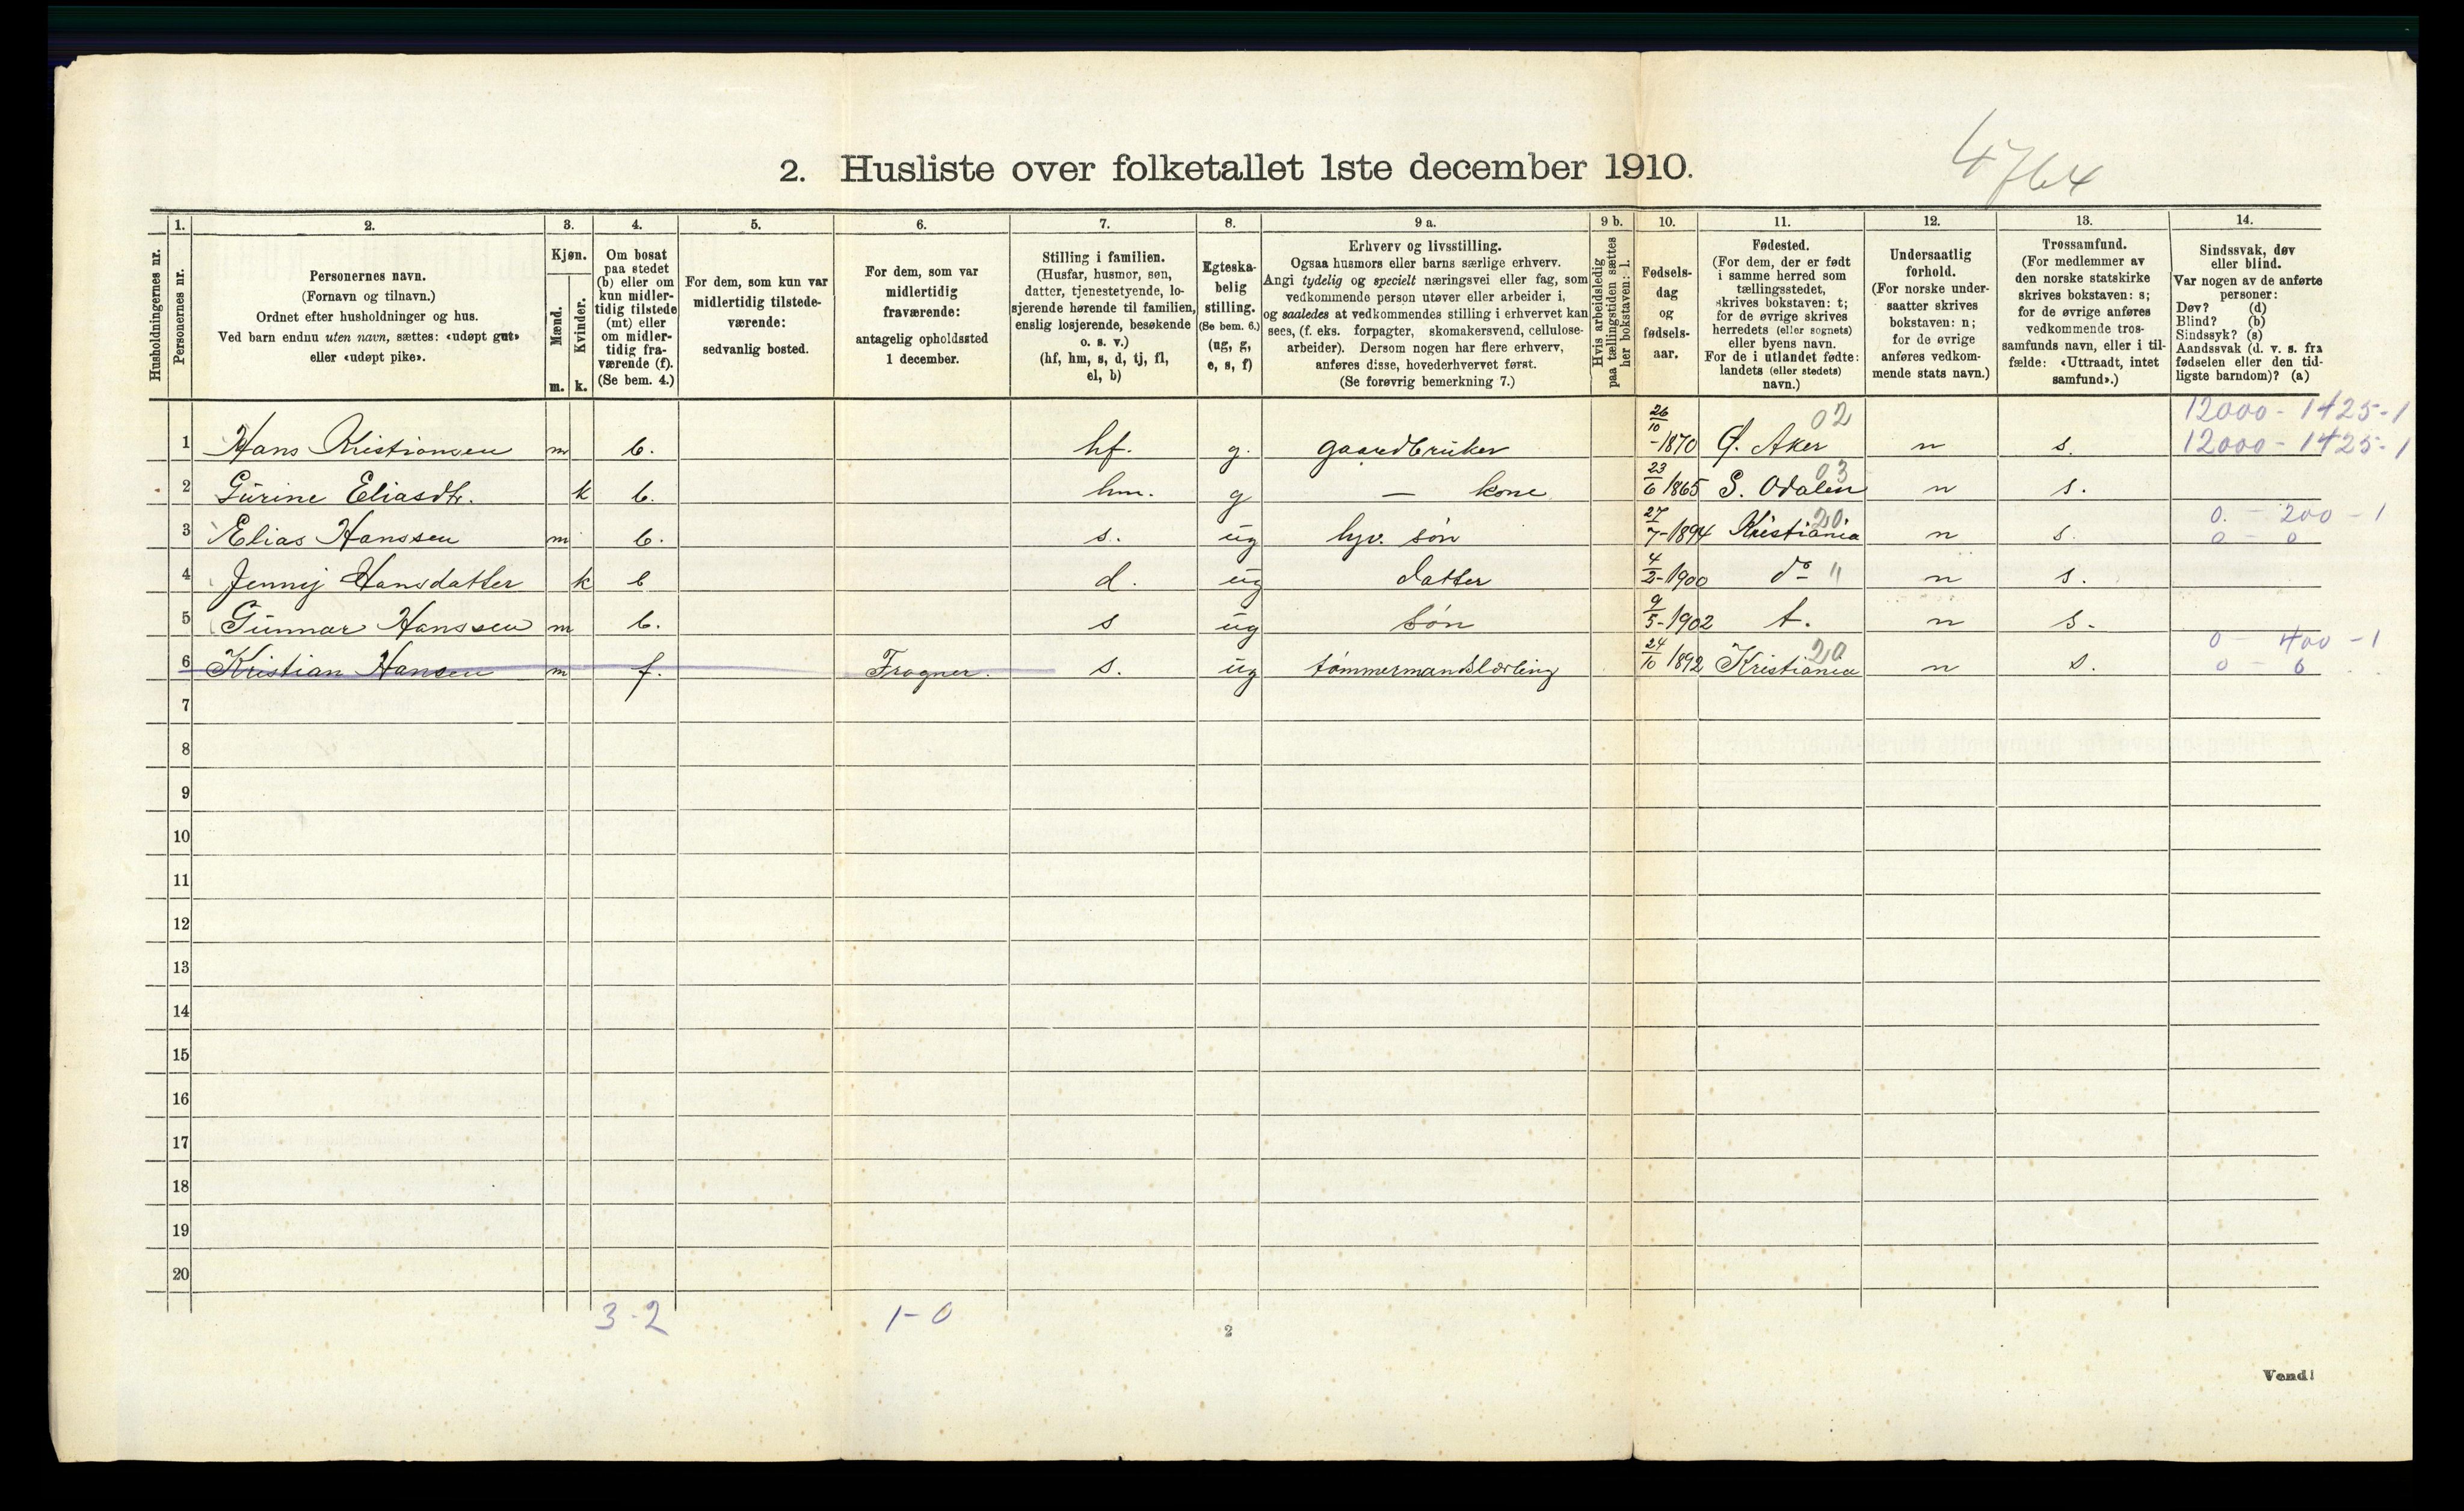 4764
2. Husliste over folketallet 1ste december 1910.
Husholdningernes nr.
1.
Personernes nr.
2.
Personernes navn.
(Fornavn og tilnavn.)
Ordnet efter husholdninger og hus.
Ved barn endnu uten navn, sættes: «udøpt gut»
eller «udøpt pike».
3.
Kjøn.
Mænd.
Kvinder.
m. k.
4.
Om bosat
paa stedet
(b) eller om
kun midler-
tidig tilstede
(mt) eller
om midler-
tidig fra-
værende (f).
(Se bem. 4.)
5.
For dem, som kun var
midlertidig tilstede-
værende:
sedvanlig bosted.
6.
For dem, som var
midlertidig
fraværende:
antagelig opholdssted
1 december.
7.
Stilling i familien.
(Husfar, husmor, søn,
datter, tjenestetyende, lo-
sjerende hørende til familien,
enslig losjerende, besøkende
o. s. v.)
(hf, hm, s, d, tj, fl,
el, b)
8.
Egteska-
belig
stilling.
(Se bem. 6.)
(ug, g,
e, s, f)
9 a.
Erhverv og livsstilling.
Ogsaa husmors eller barns særlige erhverv.
Angi tydelig og specielt næringsvei eller fag, som
vedkommende person utøver eller arbeider i,
og saaledes at vedkommendes stilling i erhvervet kan
sees, (f. eks. forpagter, skomakersvend, cellulose-
arbeider). Dersom nogen har flere erhverv,
anføres disse, hovederhvervet først.
(Se forøvrig bemerkning 7.)
9 b.
Hvis arbeidsledig
paa tællingstiden sættes
her bokstaven: l.
10.
Fødsels-
dag
og
fødsels-
aar.
11.
Fødested.
(For dem, der er født
i samme herred som
tællingsstedet,
skrives bokstaven: t;
for de øvrige skrives
herredets (eller sognets)
eller byens navn.
For de i utlandet fødte:
landets (eller stedets)
navn.)
12.
Undersaatlig
forhold.
(For norske under-
saatter skrives
bokstaven: n;
for de øvrige
anføres vedkom-
mende stats navn.)
13.
Trossamfund.
(For medlemmer av
den norske statskirke
skrives bokstaven: s;
for de øvrige anføres
vedkommende tros-
samfunds navn, eller i til-
fælde: «Uttraadt, intet
samfund».)
14.
Sindssvak, døv
eller blind.
Var nogen av de anførte
personer:
Døv? (d)
Blind? (b)
Sindssyk? (s)
Aandssvak (d. v. s. fra
fødselen eller den tid-
ligste barndom)? (a)
02 12000 - 1425 - 1
1 Hans Kristiansen m b. hf. g. gaardbruker 26/10 -1870 Ø. Aker n s. 12000 - 1425 - 1
03
2 Gurine Eliasdtr. k b. hm. g — kone 23/6 1865 S. Odalen n s.
20 0. - 200 - 1
3 Elias Hanssen m b. s. ug hjv. søn 27/7-1894 Kristiania n s. 0 - 0
4 Jennij Hansdatter k b d. ug datter 4/2-1900 do " n s.
5 Gunnar Hanssen m b. s ug søn 9/5-1902 t. n s.
20 0 - 400 - 1
6 Kristian Hansen m f. Frogner. s. ug tømmermandslærling 24/10 1892 Kristiania n s. 0 - 0
7
8
9
10
11
12
13
14
15
16
17
18
19
20
3-2 1-0
2
Vend!